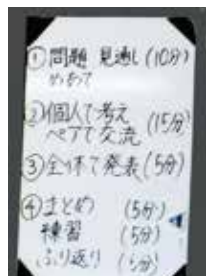 ①問題 見通し(10分)
めあて
②個人で考え
ペアで交流 (15分)
③全体で発表(5分)
④まとめ (5分)
練習 (5分)
ふり返り (5分)